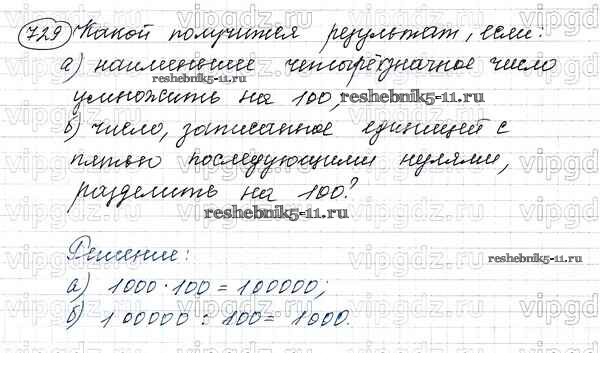 729 Какой получится результат, если:
а) наименьшее четырёхзначное число
умножить на 100, reshebnik5-11.ru
б) число, записанное единицей с
пятью последующими нулями,
разделить на 100?
reshebnik5-11.ru
Решение:
а) 1000 · 100 = 100000;
б) 100000 : 100 = 1000.